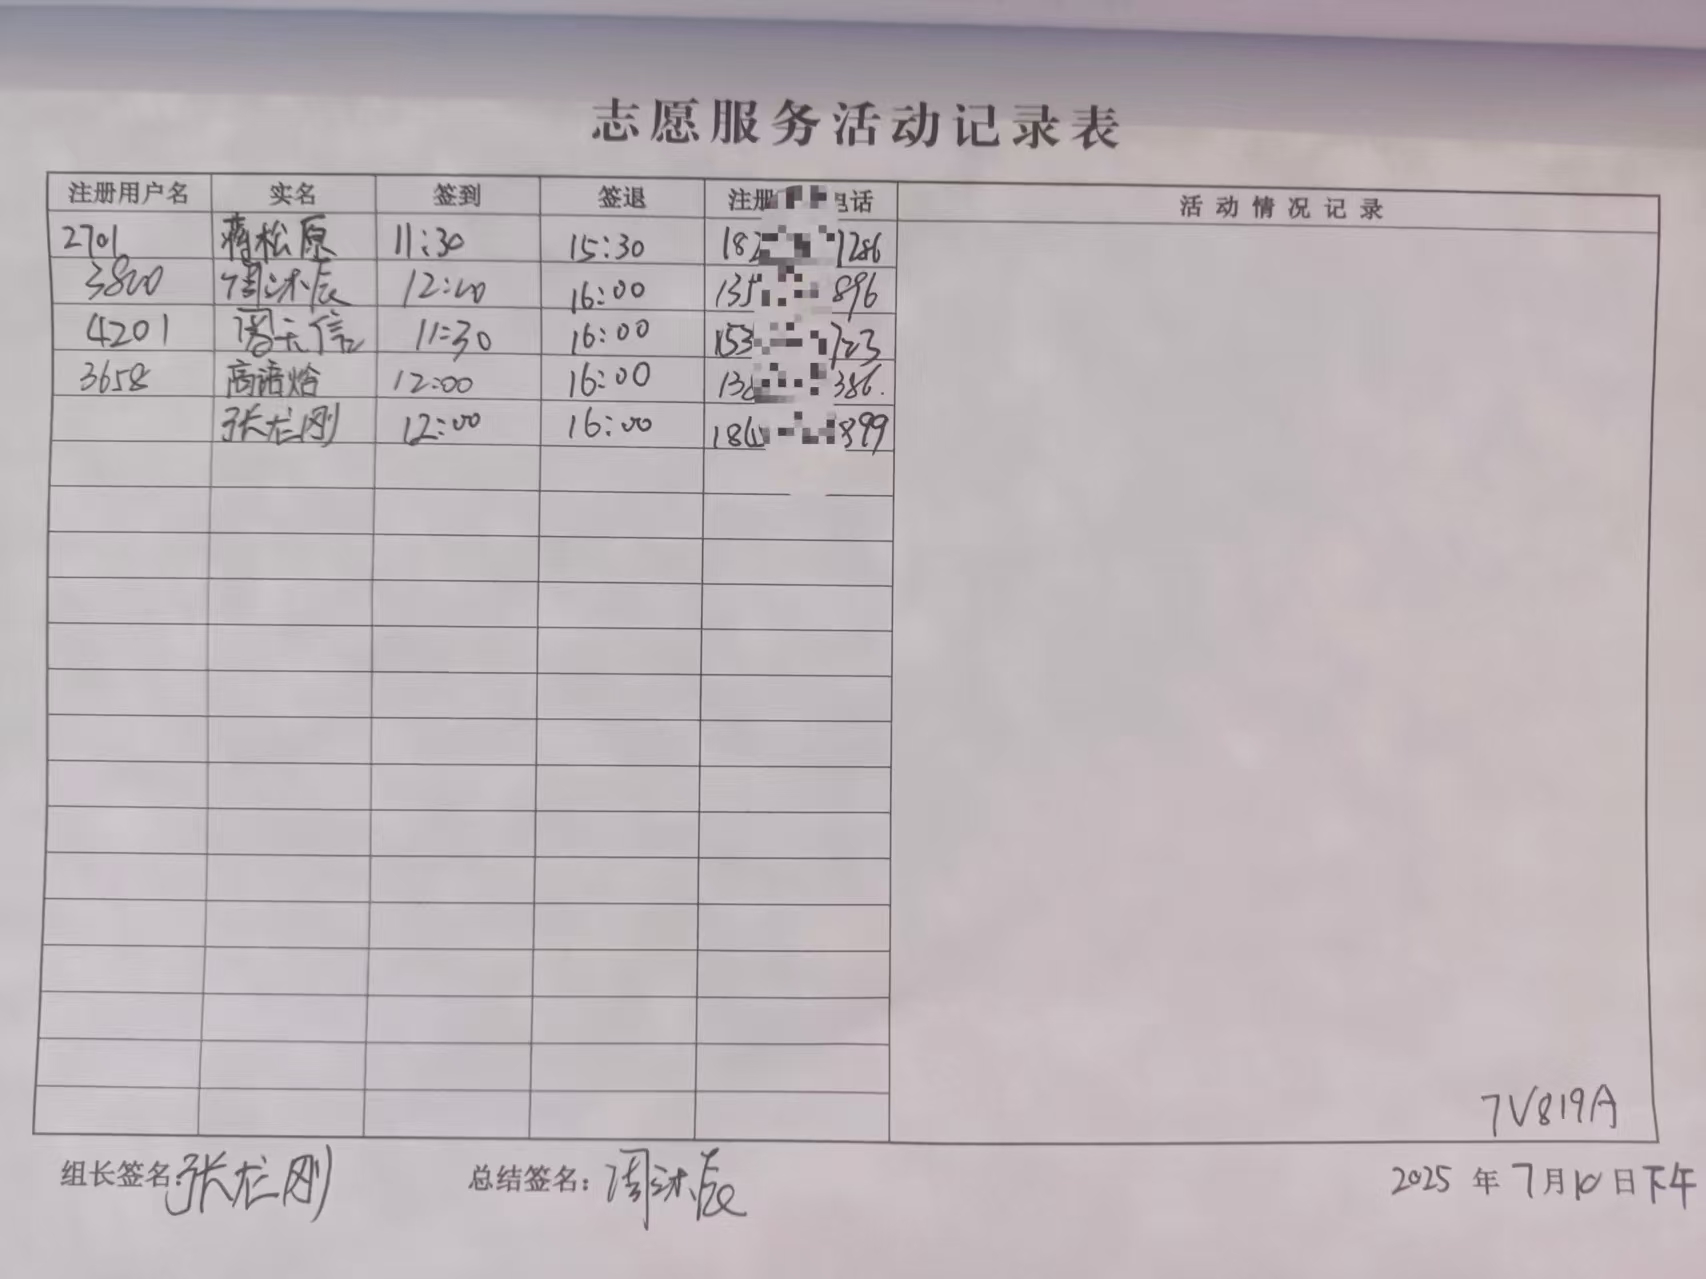 志愿服务活动记录表
注册用户名 实名 签到 签退 注册 电话 活动情况记录
2701 蒋松原 11:30 15:30 182 7286
3800 周沐辰 12:00 16:00 135 896
4201 周天信 11:30 16:00 153 723
3658 高语焓 12:00 16:00 138 386.
张龙刚 12:00 16:00 186 899
7V819A
组长签名:张龙刚 总结签名:周沐辰 2025年7月10日下午